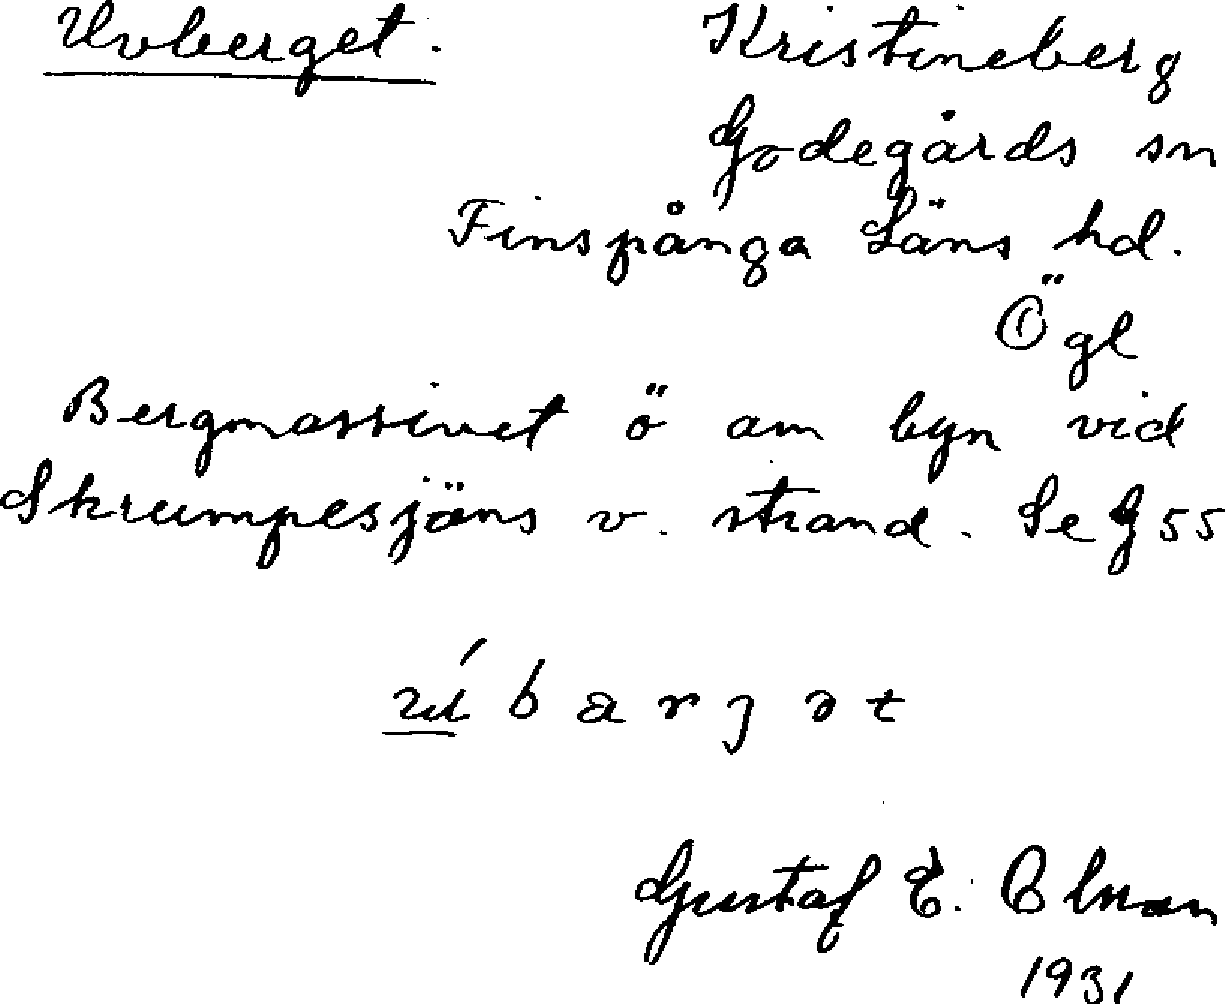 Uvberget. Kristineberg
Godegårds sn
Finspånga Läns hd.
Ögl
Bergmassivet ö om byn vid
Skrumpesjöns v. strand. Se G 55
úbarjət
Gustaf E.
1931